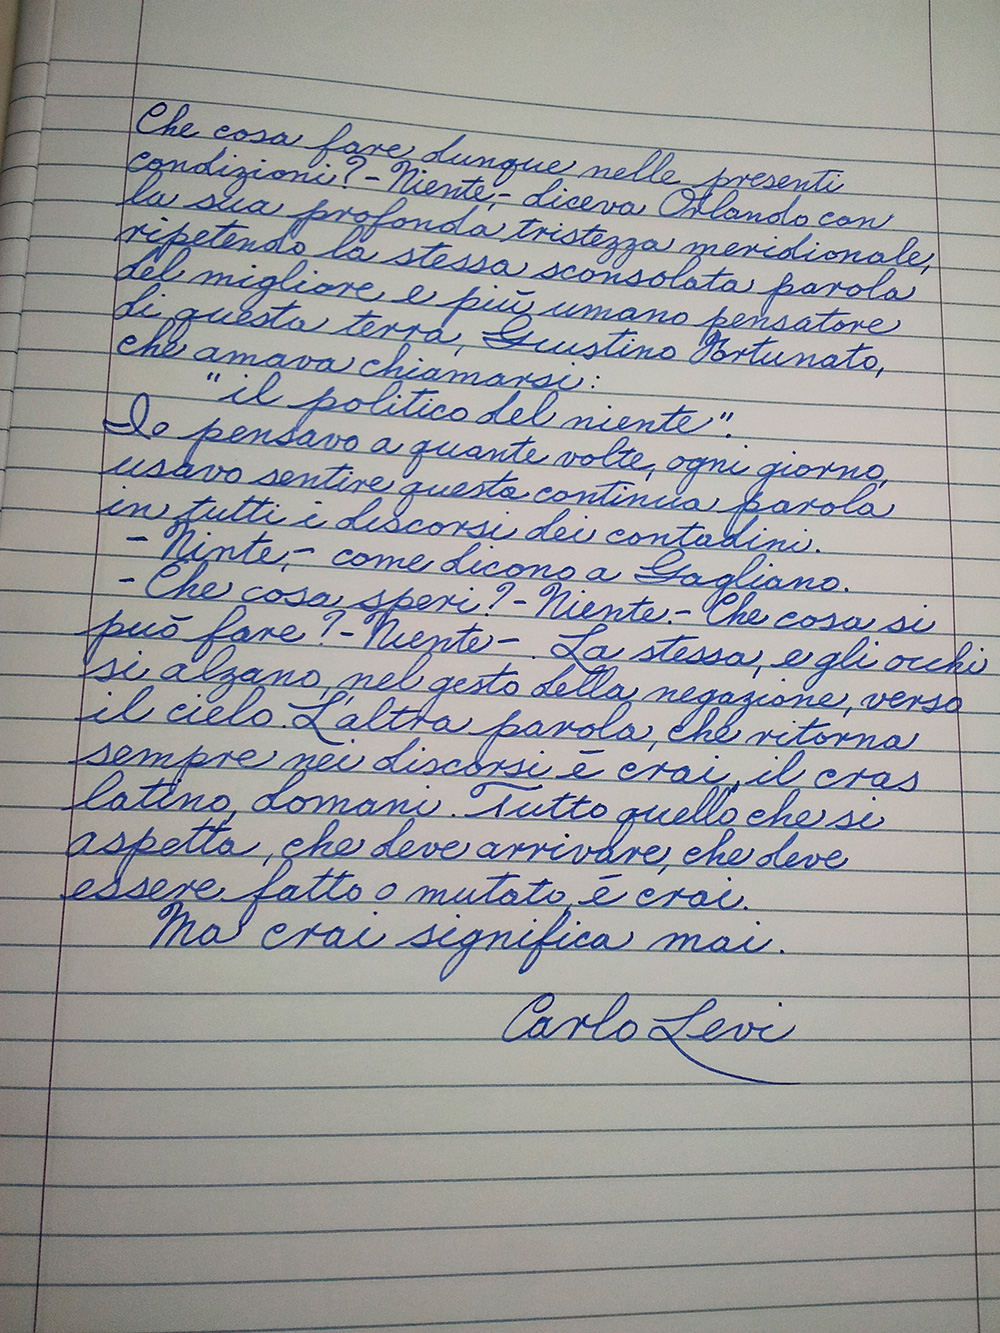 Che cosa fare dunque nelle presenti
condizioni? - Niente, - diceva Orlando con
la sua profonda tristezza meridionale,
ripetendo la stessa sconsolata parola
del migliore e più umano pensatore
di questa terra, Giustino Fortunato,
che amava chiamarsi:
"il politico del niente".
Io pensavo a quante volte, ogni giorno,
usavo sentire questa continua parola
in tutti i discorsi dei contadini.
- Ninte, - come dicono a Gagliano.
- Che cosa speri? - Niente. - Che cosa si
può fare? - Niente -. La stessa, e gli occhi
si alzano, nel gesto della negazione, verso
il cielo. L'altra parola, che ritorna
sempre nei discorsi è crai, il cras
latino, domani. Tutto quello che si
aspetta, che deve arrivare, che deve
essere fatto o mutato, è crai.
Ma crai significa mai.
Carlo Levi